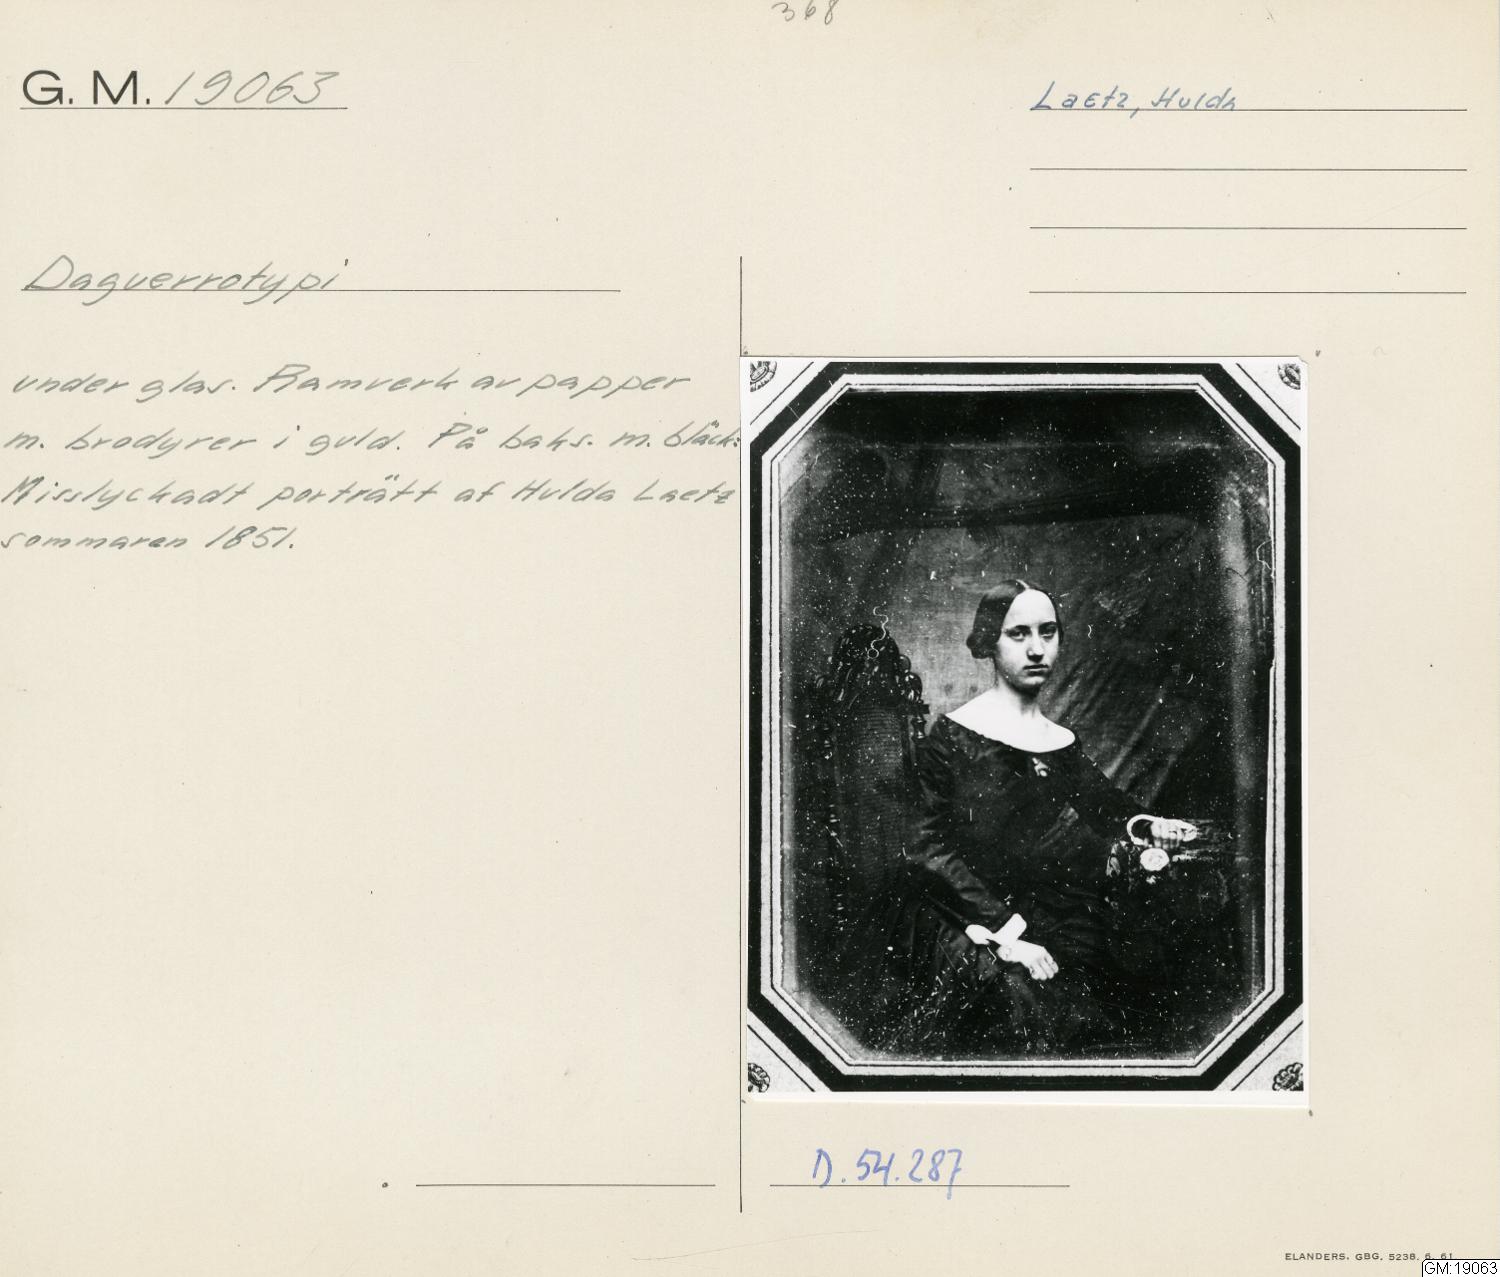 368
G. M. 19063
Laetz, Hulda
Daguerrotypi
under glas. Ramverk av papper
m. brodyrer i guld. På baks. m. bläck:
Misslyckadt porträtt af Hulda Laetz
sommaren 1851.
D. 54.287
ELANDERS, GBG, 5238. 6. 61
GM:19063